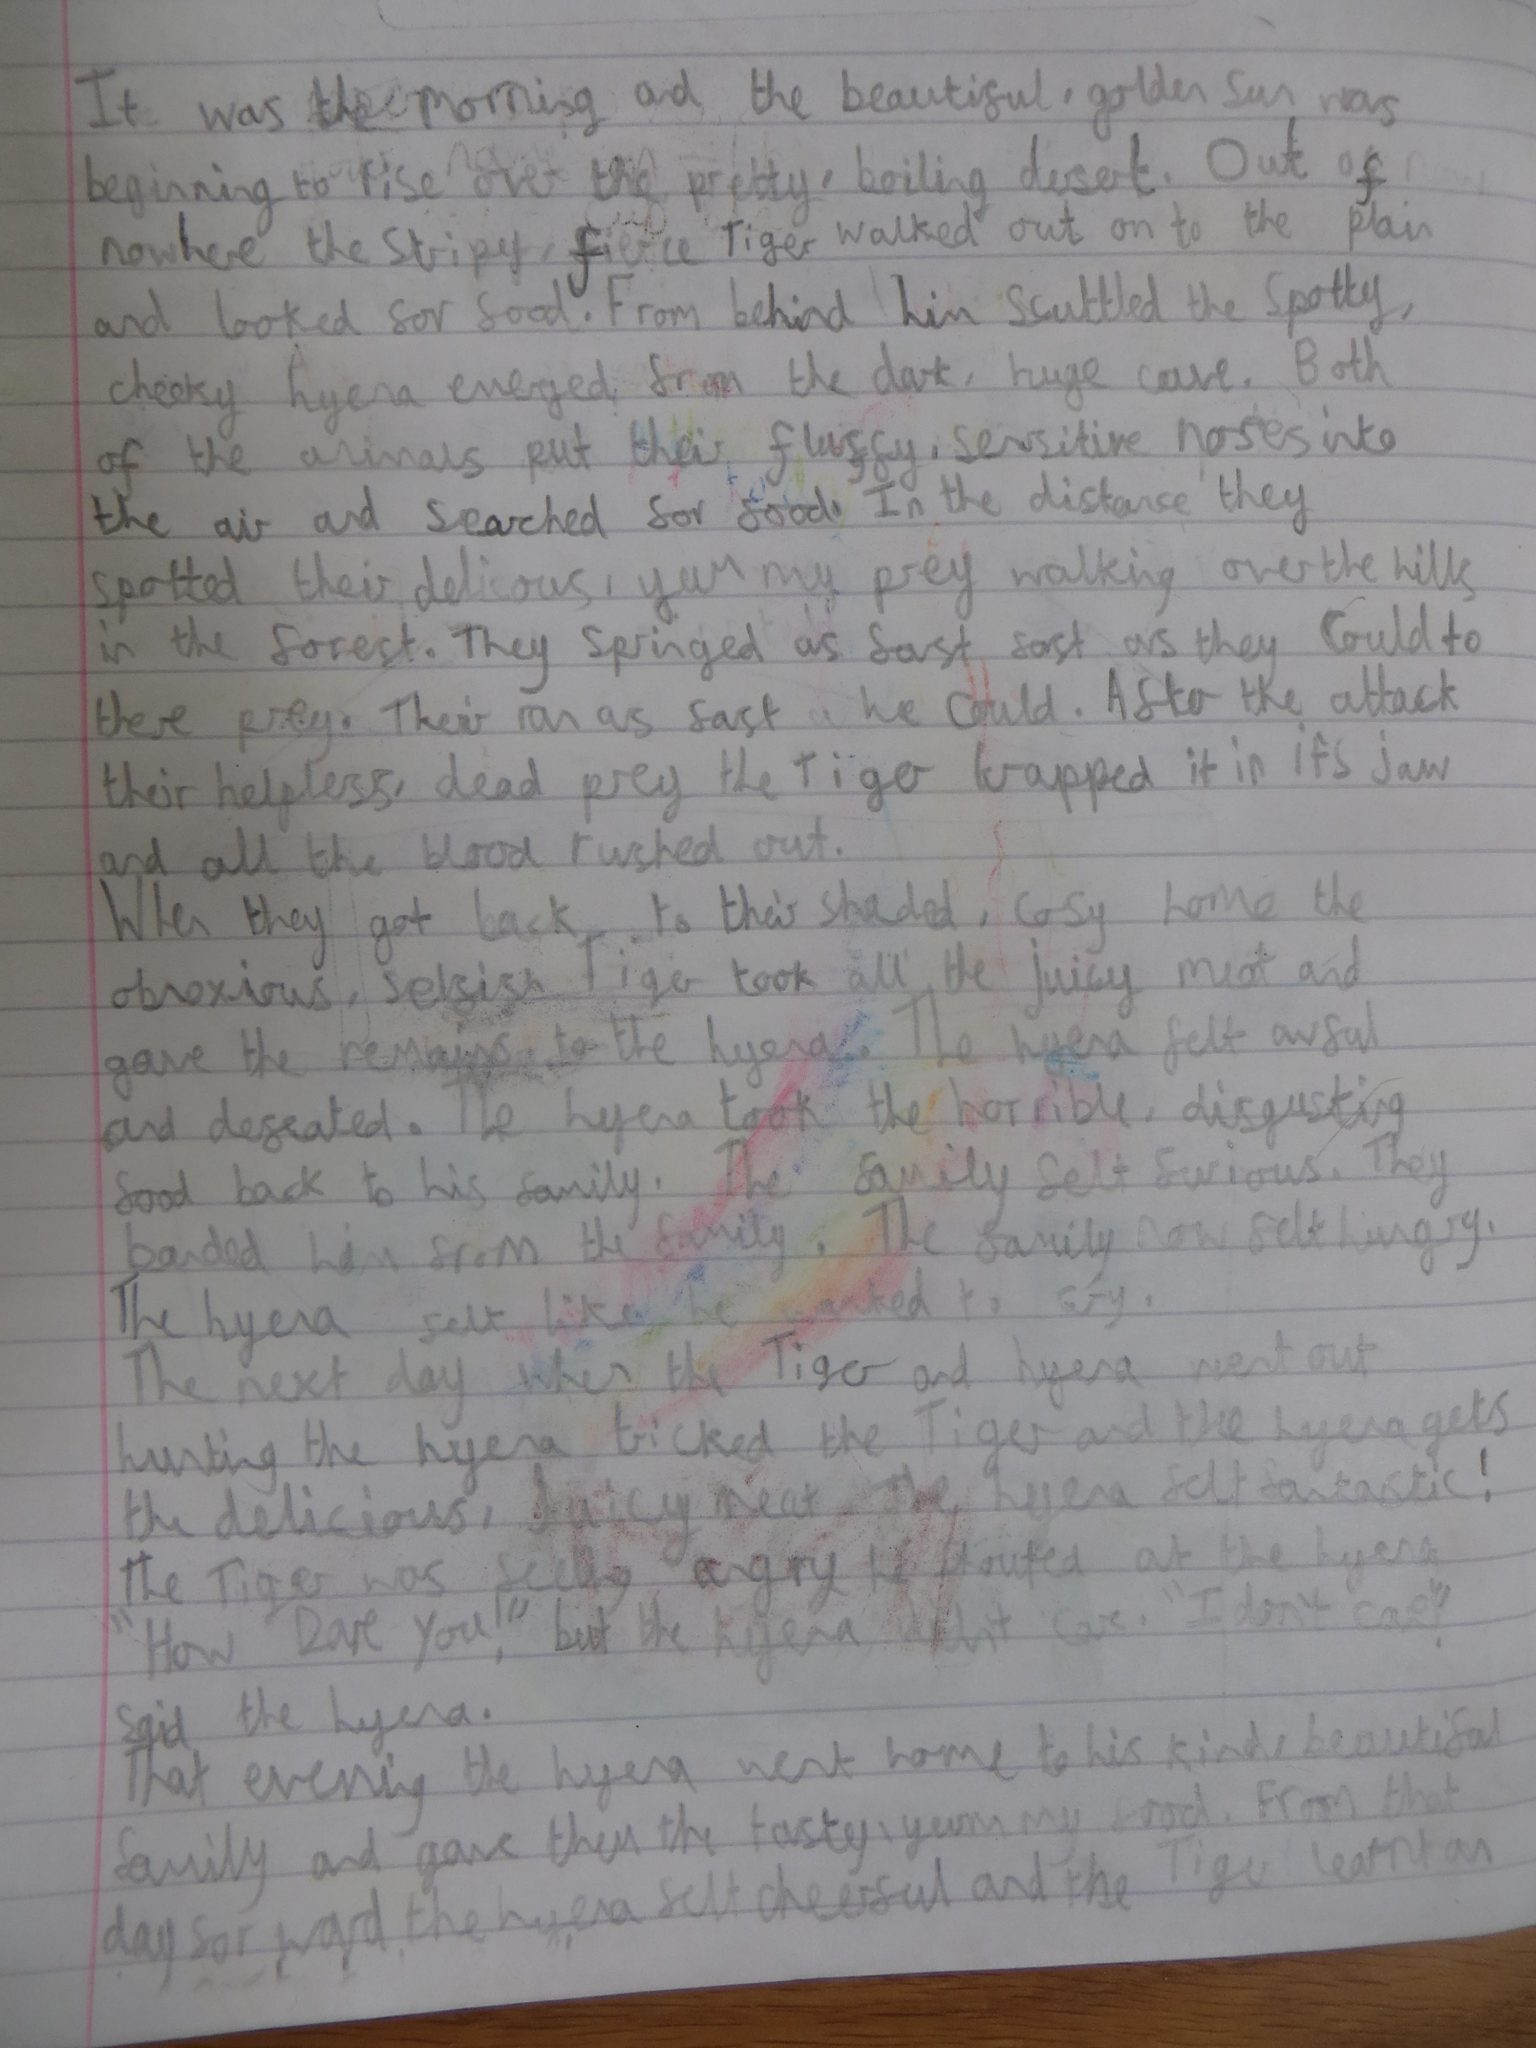 It was the morning and the beautiful, golden sun was
beginning to rise over the pretty, boiling desert. Out of
nowhere the stripy, fierce Tiger walked out on to the plain
and looked for food. From behind him scuttled the spotty,
cheeky hyena emerged from the dark, huge cave. Both
of the animals put their fluffy, sensitive noses into
the air and searched for food. In the distance they
spotted their delicous, yummy prey walking over the hills
in the forest. They springed as fast fast as they could to
there prey. Their ran as fast a he could. After the attack
their helpless, dead prey the Tiger wrapped it in it's jaw
and all the blood rushed out.
When they got back to their shaded, cosy home the
obnoxious, selfish Tiger took all the juicy meat and
gave the remains to the hyena. The hyena felt awful
and defeated. The hyena took the horrible, disgusting
food back to his family. The family felt furious. They
banded him from the family. The family now felt hungry.
The hyena felt like he wanted to cry.
The next day when the Tiger and hyena went out
hunting the hyena tricked the Tiger and the hyena gets
the delicious, juicy meat. The hyena felt fantastic!
The Tiger was angry he shouted at the hyena
"How Dare you!," but the hyena didn't care. "I don't care"
said the hyena.
That evening the hyena went home to his kind, beautiful
family and gave them the tasty, yummy food. From that
day for ward the hyena felt cheerful and the Tiger learnt an